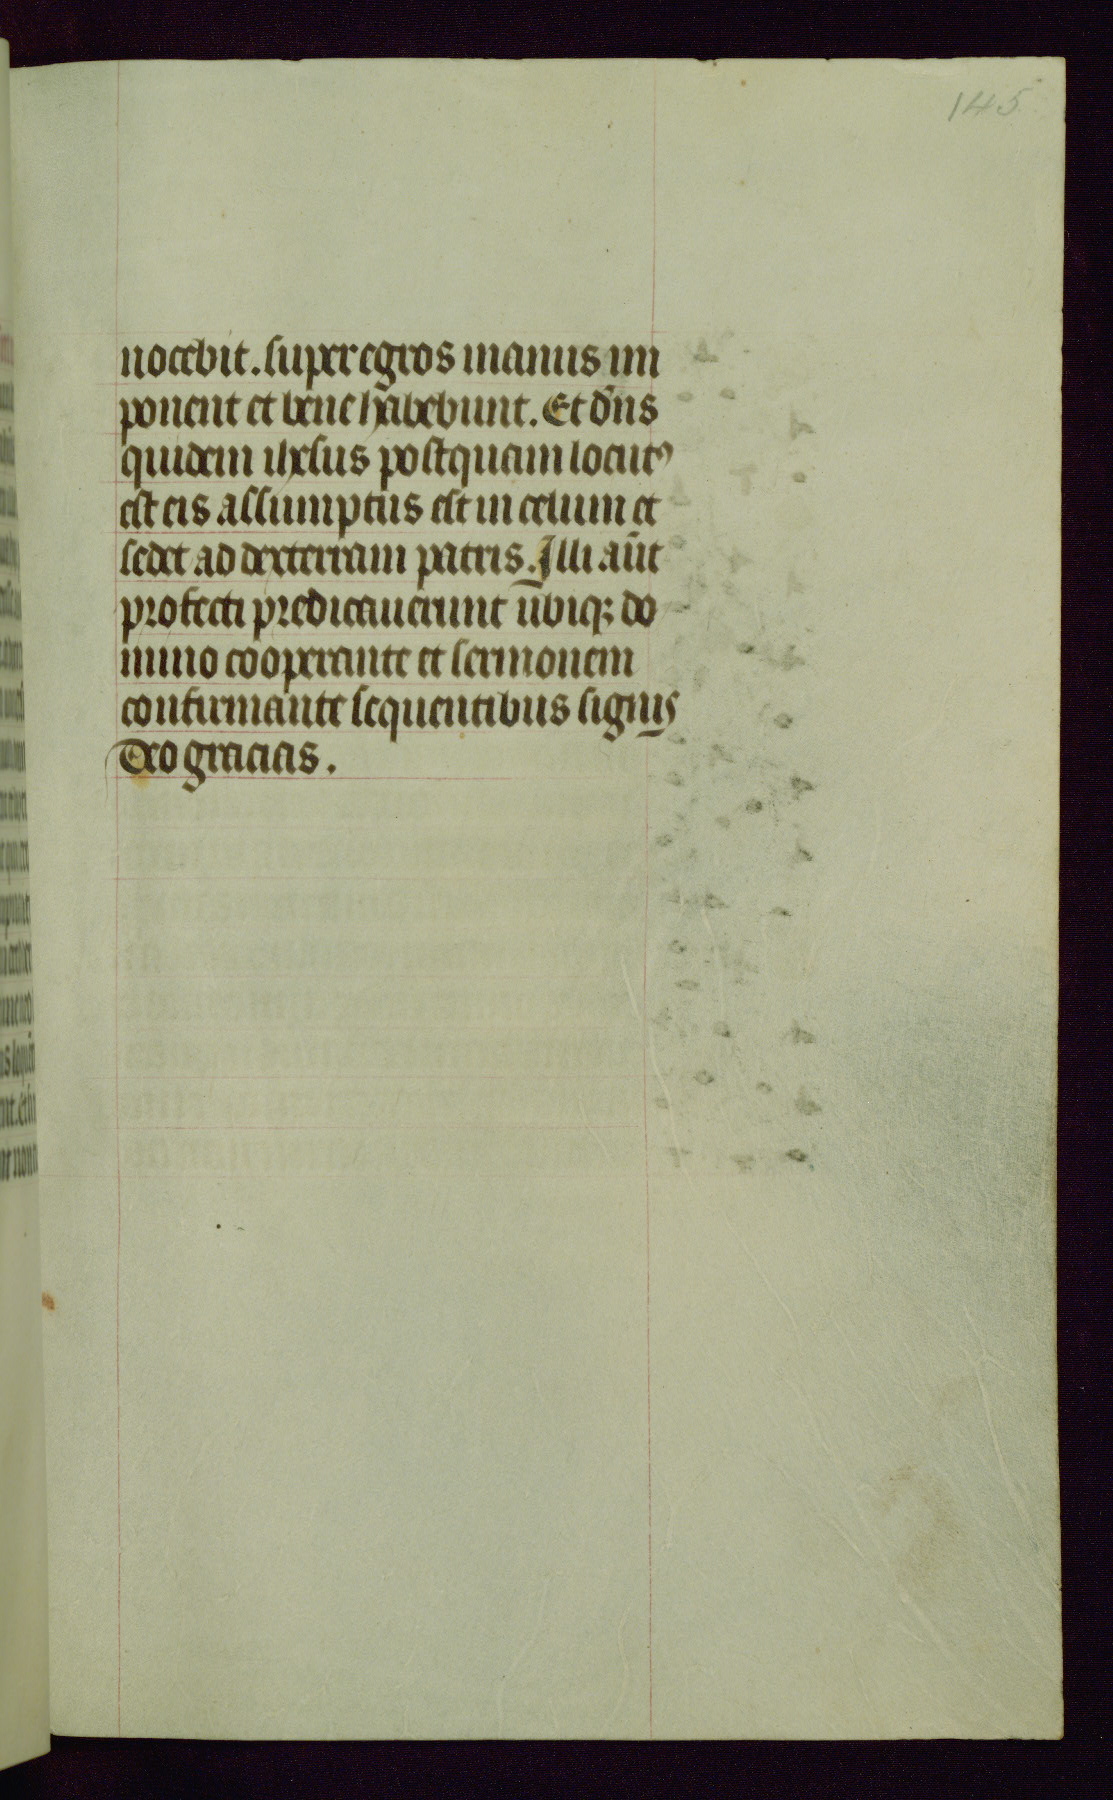 145
nocebit. super egros manus im
ponent et bene habebunt. Et dn̄s
quidem ihesus postquam locutꝰ
est eis assumptus est in celum et
sedet ad dexteram patris. Illi aūt
profecti predicauerunt ubiqꝫ do
mino cooperante et sermonem
confirmante sequentibus signis
Deo gracias.